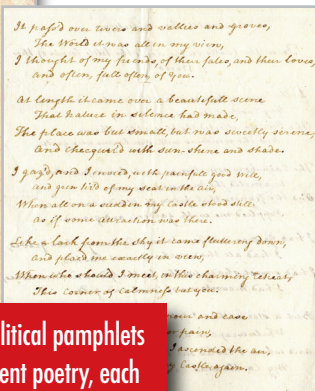 It pass'd over towns and vallies and groves,
The World it was all in my view,
I thought of my friends, of their fates, and their loves,
and often, full often, of you.
At length it came over a beautifull scene
That Nature in silence had made,
The place was but small, but was sweetly serene,
and checquer'd with sun-shine and shade.
I gaz'd, and I envied, with painfull good will,
and grew tired of my seat in the air,
When all on a sudden my Castle stood still
as if some attraction was there.
Like a lark from the sky it came fluttering down,
and plac'd me exactly in view,
When who should I meet, in this charming retreat,
This corner of calmness but you.
and ease
pain,
I ascended the air,
Castle again.
litical pamphlets
ent poetry, each